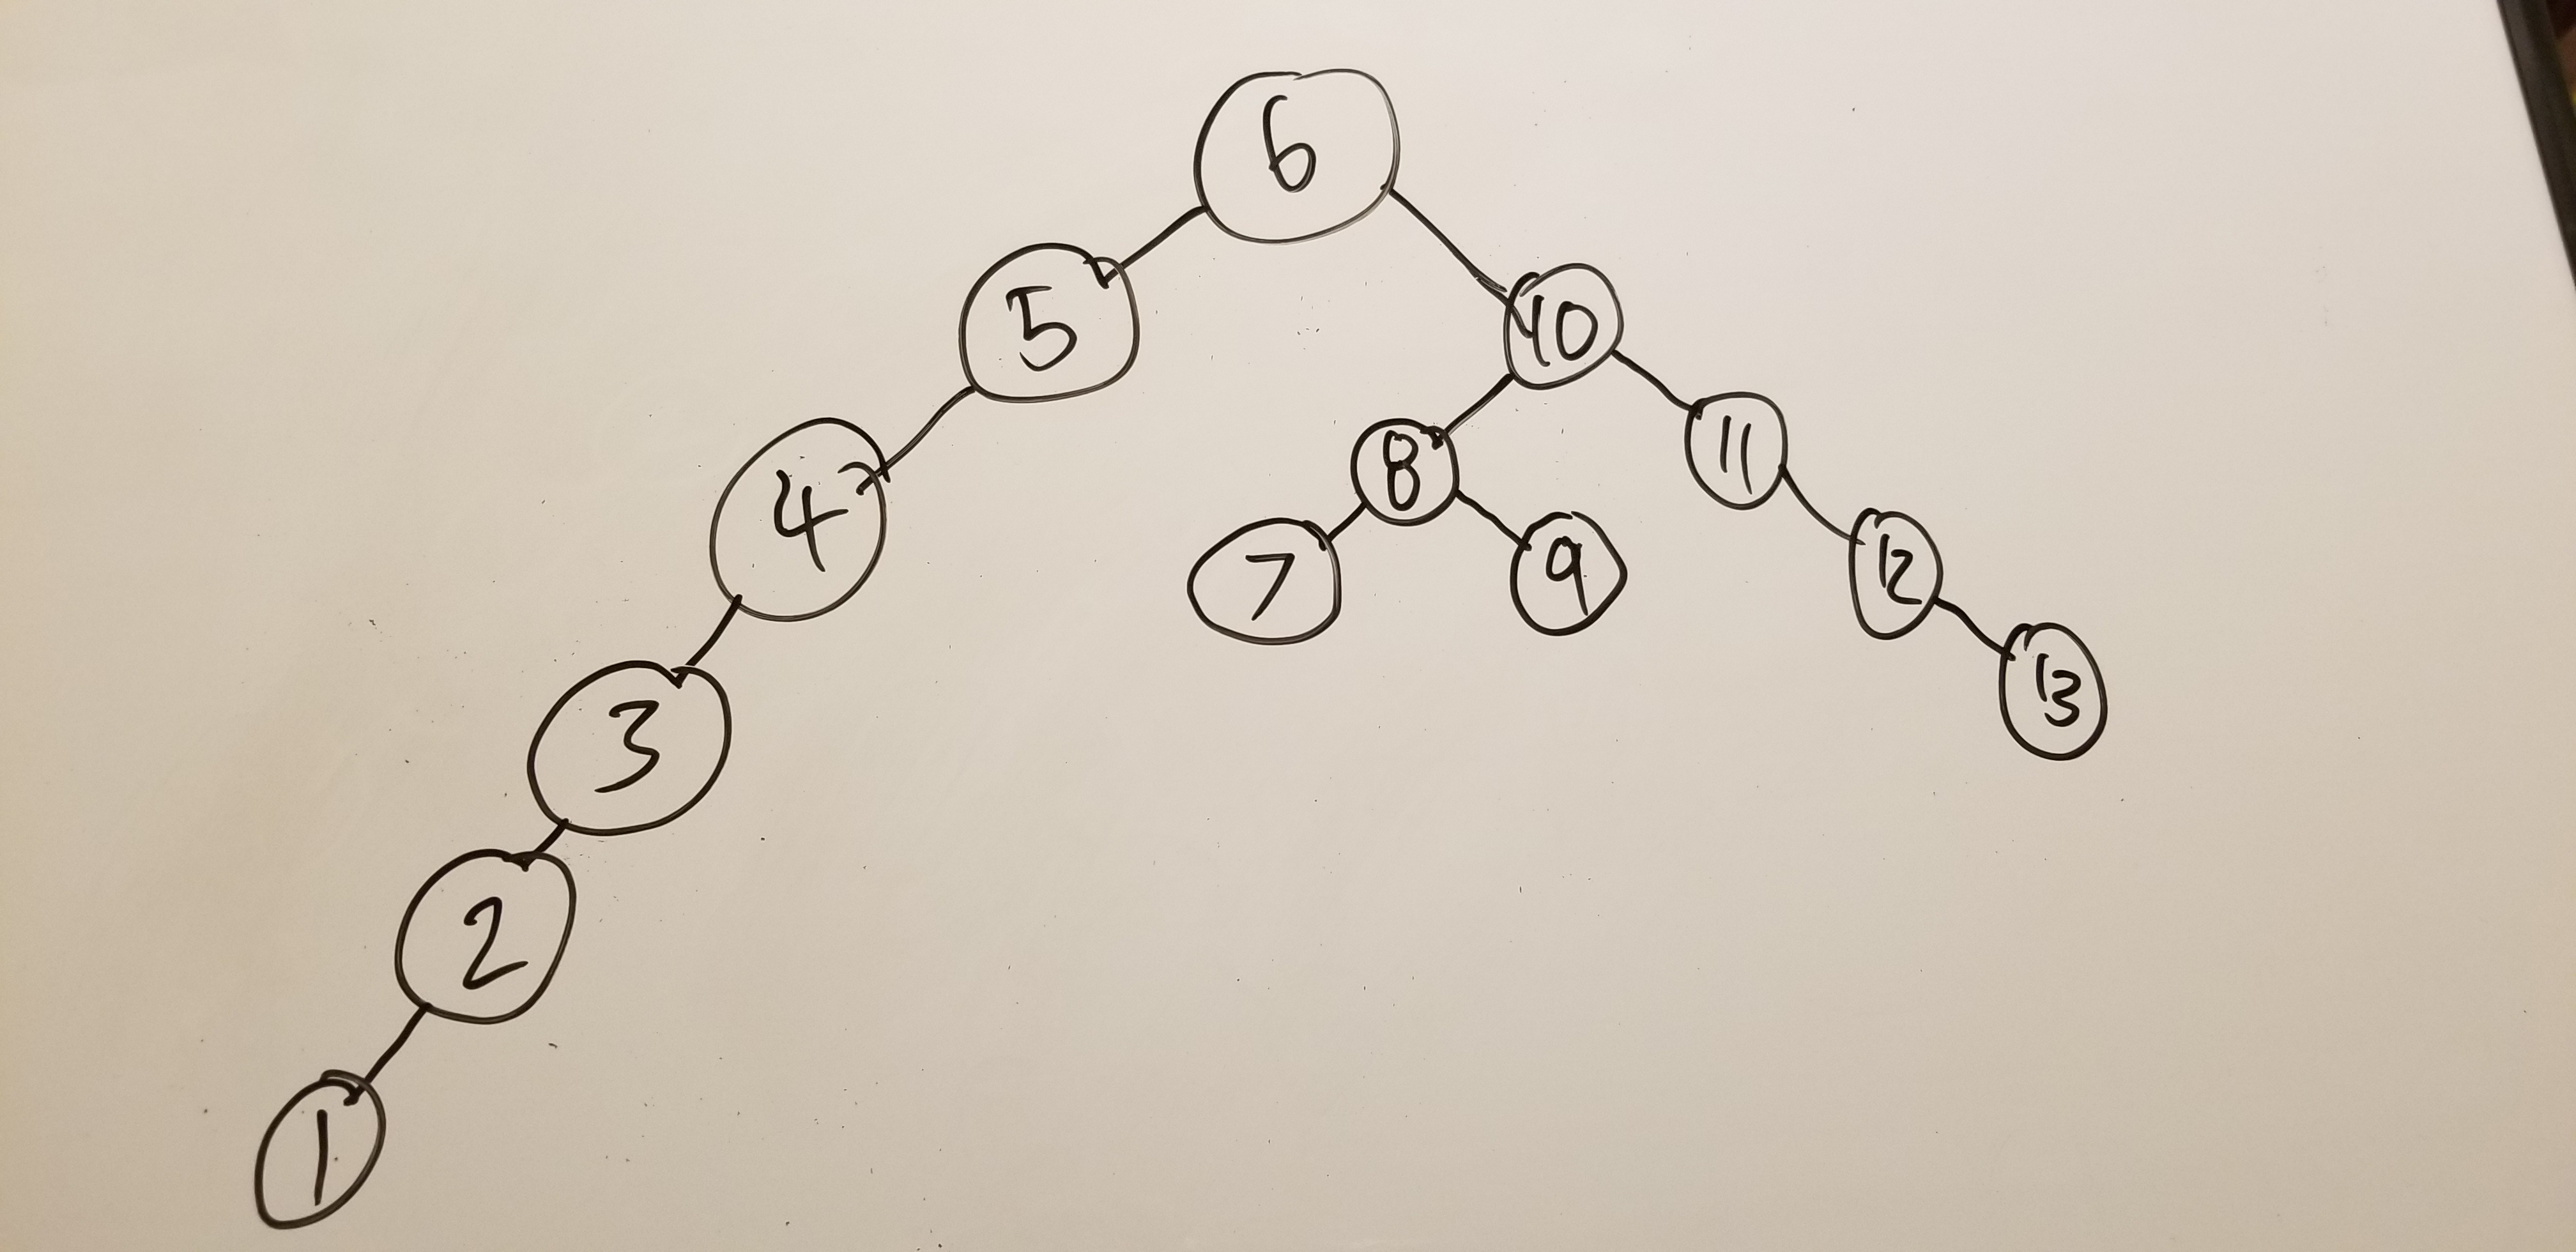 6
5 10
4 8 11
3 7 9 12
2 13
1